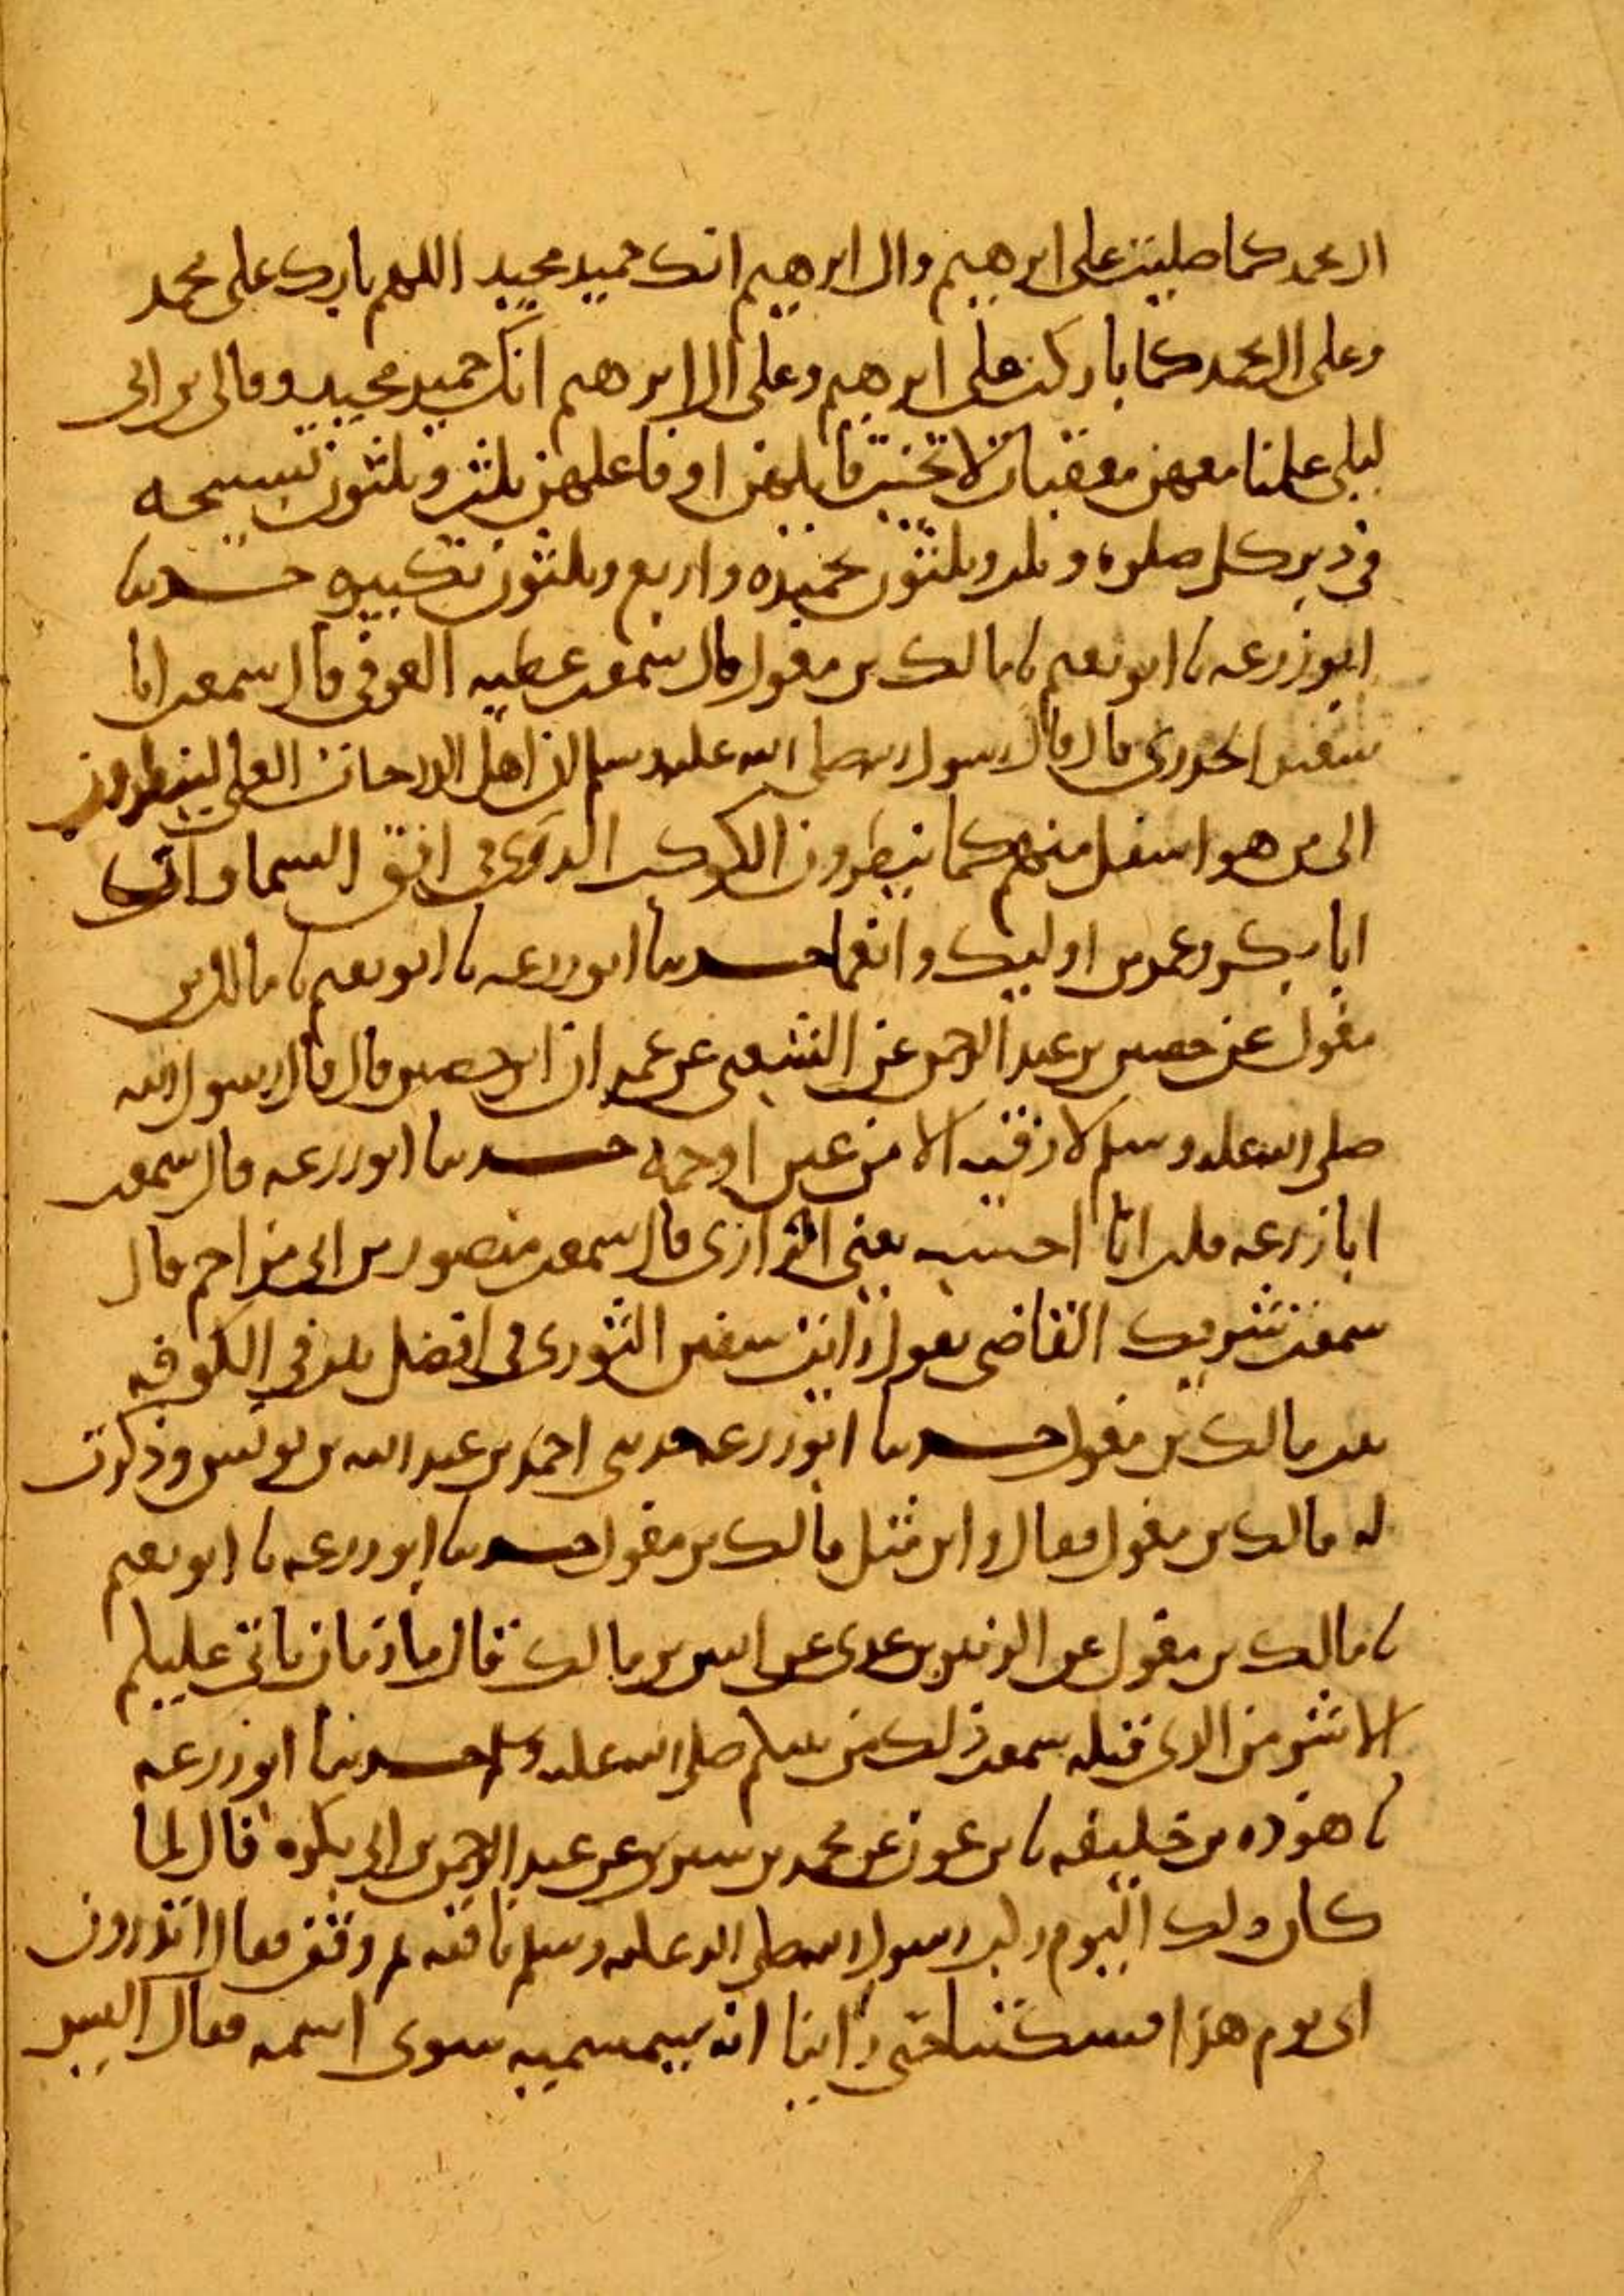 ال محمد كما صليت على ابرهيم وال ابرهيم انك حميد مجيد اللهم بارك على محمد
وعلى ال محمد كما باركت على ابرهيم وعلى ال ابرهيم انك حميد مجيد وقال لى بن ابى
ليلى علمنا معهن معقبات لا تخيب قايلهن او فاعلهن ثلث وثلثون تسبيحه
فى دبر كل صلوه وثلث وثلثون تحميده واربع وثلثون تكبيره حدثنا
ابو زرعه نا ابو نعيم نا مالك بن مغول قال سمعت عطيه العوفى قال سمعت ابا
سعيد الخدرى قال قال رسول الله صلى الله عليه وسلم ان اهل الدرجات العلى لينظرون
الى من هو اسفل منهم كما ينظرون الكوكب الدرى فى افق السما وان
ابا بكر وعمر من اوليك وانعما حدثنا ابو زرعه نا ابو نعيم نا مالك بن
مغول عن حصين بن عبد الرحمن عن الشعبى عن عمران ابن حصين قال قال رسول الله
صلى الله عليه وسلم لا رقيه الا من عين او حمه حدثنا ابو زرعه قال سمعت
ابا زرعه قلت انا احسبه يعنى الرازى قال سمعت منصور بن ابى مزاحم قال
سمعت شريك القاضى يقول رايت سفين الثورى فى افضل بلد فى الكوفه
بعد مالك بن مغول حدثنا ابو زرعه حدثنى احمد بن عبد الله بن يونس وذكرت
له مالك بن مغول فقال واين مثل مالك بن مغول حدثنا ابو زرعه نا ابو نعيم
نا مالك بن مغول عن الزبير بن عدى عن انس بن مالك قال ما زمان ياتى عليكم
الا شر من الذى قبله سمعت ذلك من نبيكم صلى الله عليه وسلم حدثنا ابو زرعه
نا هوذه بن خليفه نا بن عون عن محمد بن سيرين عن عبد الرحمن بن ابى بكره قال لما
كان ذلك اليوم ركب رسول الله صلى الله عليه وسلم ناقته ثم وقف فقال اتدرون
اى يوم هذا فسكتنا حتى راينا انه سيسميه سوى اسمه فقال اليس